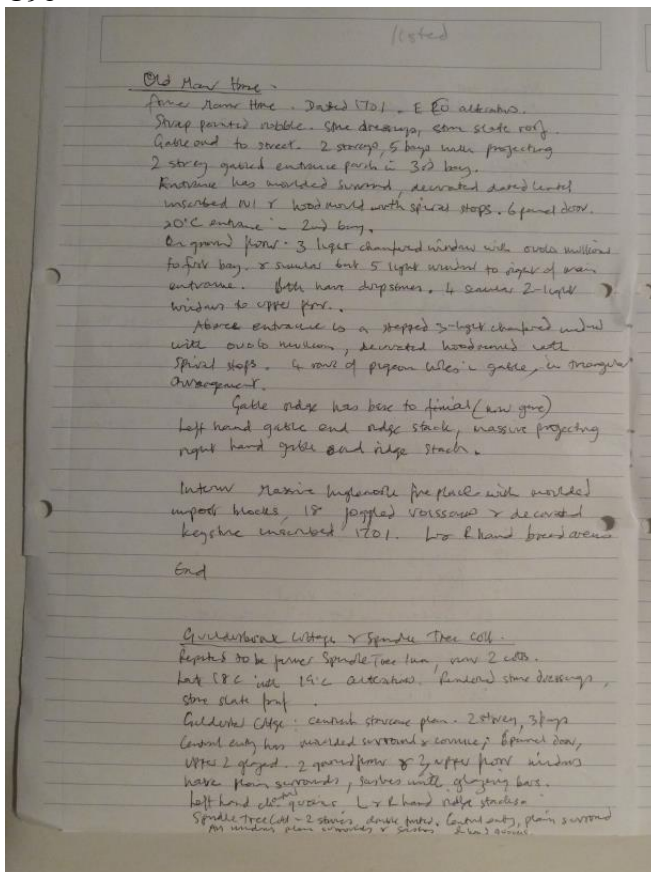 listed
Old Manor House -
former Manor House. Dated 1701. E C20 alterations.
Strap pointed rubble. Stone dressings, stone slate roof.
Gable end to street. 2 storeys, 5 bays with projecting
2 storey gabled entrance porch in 3rd bay.
Entrance has moulded surround, decorated dated lintel
inscribed & hood mould with spiral stops. 6 panel door.
20°C entrance in 2nd bay.
On ground floor - 3 light chamfered window with ovolo mullions
to first bay. & similar but 5 light window to right of main
entrance. Both have dripstones. 4 similar 2-light
windows to upper floor.
Above entrance is a stepped 3-light chamfered window
with ovolo mullion, decorated hoodmould with
spiral stops. 4 rows of pigeon holes in gable, in triangular
arrangement.
Gable ridge has base to finial (now gone)
Left hand gable end ridge stack, massive projecting
right hand gable end ridge stack.
Interior Massive Inglenook fireplace with moulded
impost blocks, 18 joggled voissoirs & decorated
keystone inscribed 1701. L & R hand bread ovens
End
Guilderbrook Cottage & Spindle Tree Cott.
Reputed to be former Spindle Tree Inn, now 2 cotts.
Late 18C with 19°C alterations. Rendered stone dressings,
stone slate roof.
Cottage: central staircase plan. 2 storey, 3 bays
Central entry has moulded surround & cornice; 6 panel door,
upper 2 glazed. 2 ground floor & 3 upper floor windows
have plain surrounds, sashes with glazing bars.
Left hand quoins. L & R hand ridge stacks
Spindle Tree Cott - 2 storeys, double fronted. Central entry, plain surround
windows plain surrounds & sashes R hand quoins.